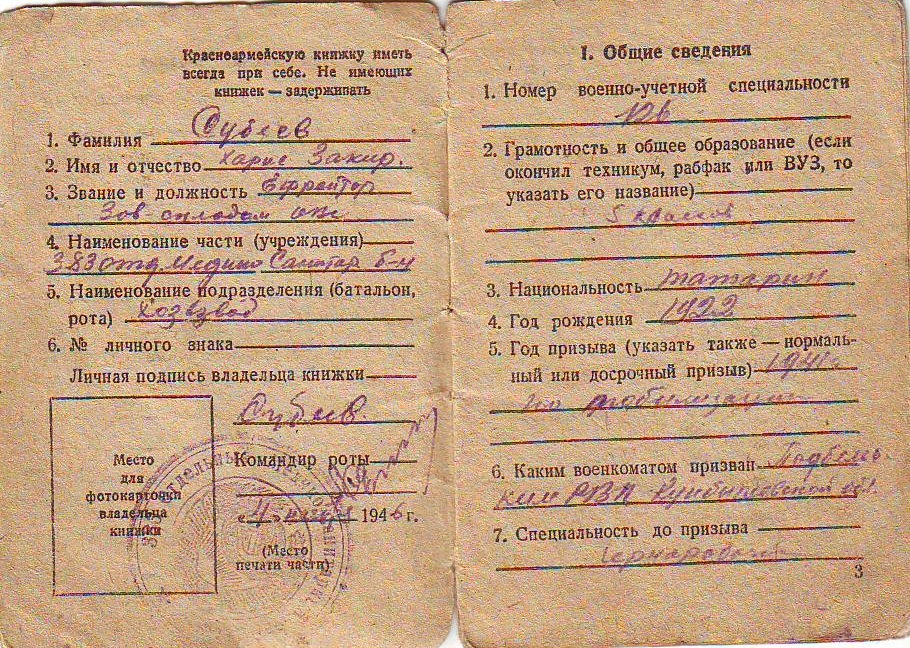 Красноармейскую книжку иметь
всегда при себе. Не имеющих
книжек — задерживать
1. Фамилия Субеев
2. Имя и отчество Харис Закир.
3. Звание и должность Ефрейтор
Зав складом
4. Наименование части (учреждения)
383 отд Медико Санитар б-н
5. Наименование подразделения (батальон,
рота) Хозвзвод
6. № личного знака
Личная подпись владельца книжки
Субеев
Место
для
фотокарточки
владельца
книжки
Командир роты
1946 г.
(Место
печати части)
I. Общие сведения
1. Номер военно-учетной специальности
126
2. Грамотность и общее образование (если
окончил техникум, рабфак или ВУЗ, то
указать его название)
5 классов
3. Национальность татарин
4. Год рождения 1922
5. Год призыва (указать также — нормаль-
ный или досрочный призыв) 1941
по мобилизации
6. Каким военкоматом призван Подбель-
ским РВК Куйбышевской обл.
7. Специальность до призыва
3